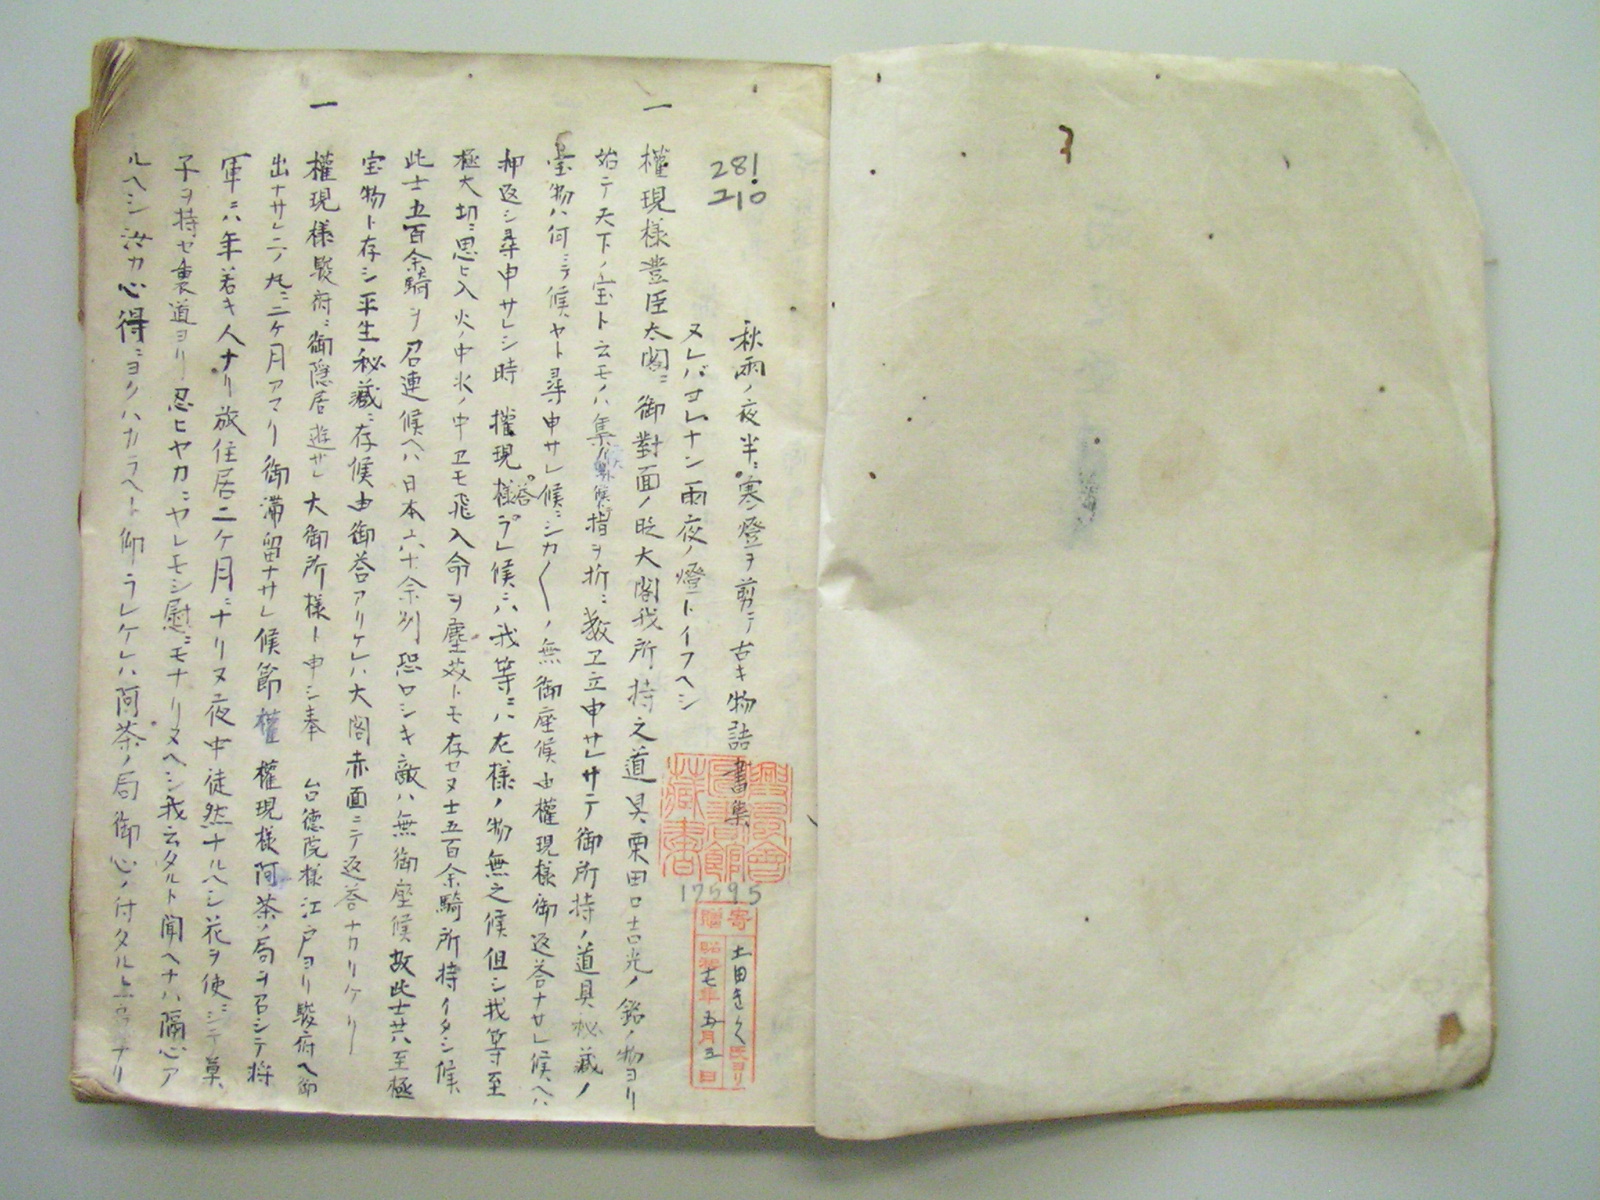 281
210
秋雨ノ夜半ニ寒燈ヲ剪テ古キ物語書集
ヌレバコレナン雨夜ノ燈トイフヘシ
興風会図書館蔵書
17595
寄贈
土田きく氏ヨリ
昭和七年五月五日
一 權現様豊臣太閤ニ御對面ノ眨大閤我所持之道具粟田口吉光ノ銘ノ物ヨリ
始テ天下ノ宝ト云モノハ集候指ヲ折ニ数ヱ立申サレサテ御所持ノ道具秘藏ノ
宝物ハ何ニテ候ヤト尋申サレ候ニシカ〳〵ノ無御座候由權現様御返答ナサレ候ヘハ
押返シ尋申サレシ時權現様答ラレ候ニハ我等ニハ左様ノ物無之候但シ我等至
極大切ニ思ヒ入火ノ中水ノ中ヱモ飛入命ヲ塵芥トモ存セヌ士五百余騎所持イタシ候
此士五百余騎ヲ召連候ヘハ日本六十余列恐ロシキ敵ハ無御座候故此士共至極
宝物ト存シ平生秘藏ニ存候由御答アリケレハ大閤赤面ニテ返答ナカリケリ
一 權現様駿府ニ御隠居遊サレ大御所様ト申シ奉 台徳院様江戸ヨリ駿府ヘ御
出ナサレ二ノ丸ニ二ケ月アマリ御滞留ナサレ候節權 權現様阿茶ノ局ヲ召シテ将
軍ニハ年若キ人ナリ放住居二ケ月ニナリヌ夜中徒然ナルヘシ花ヲ使ニシテ菓
子ヲ持セ裏道ヨリ忍ヒヤカニヤレモシ慰ニモナリヌヘシ我云タルト聞ヘナハ隔心ア
ルヘシ汝カ心得ニヨクハカラヘト仰ラレケレハ阿茶ノ局御心ノ付タル